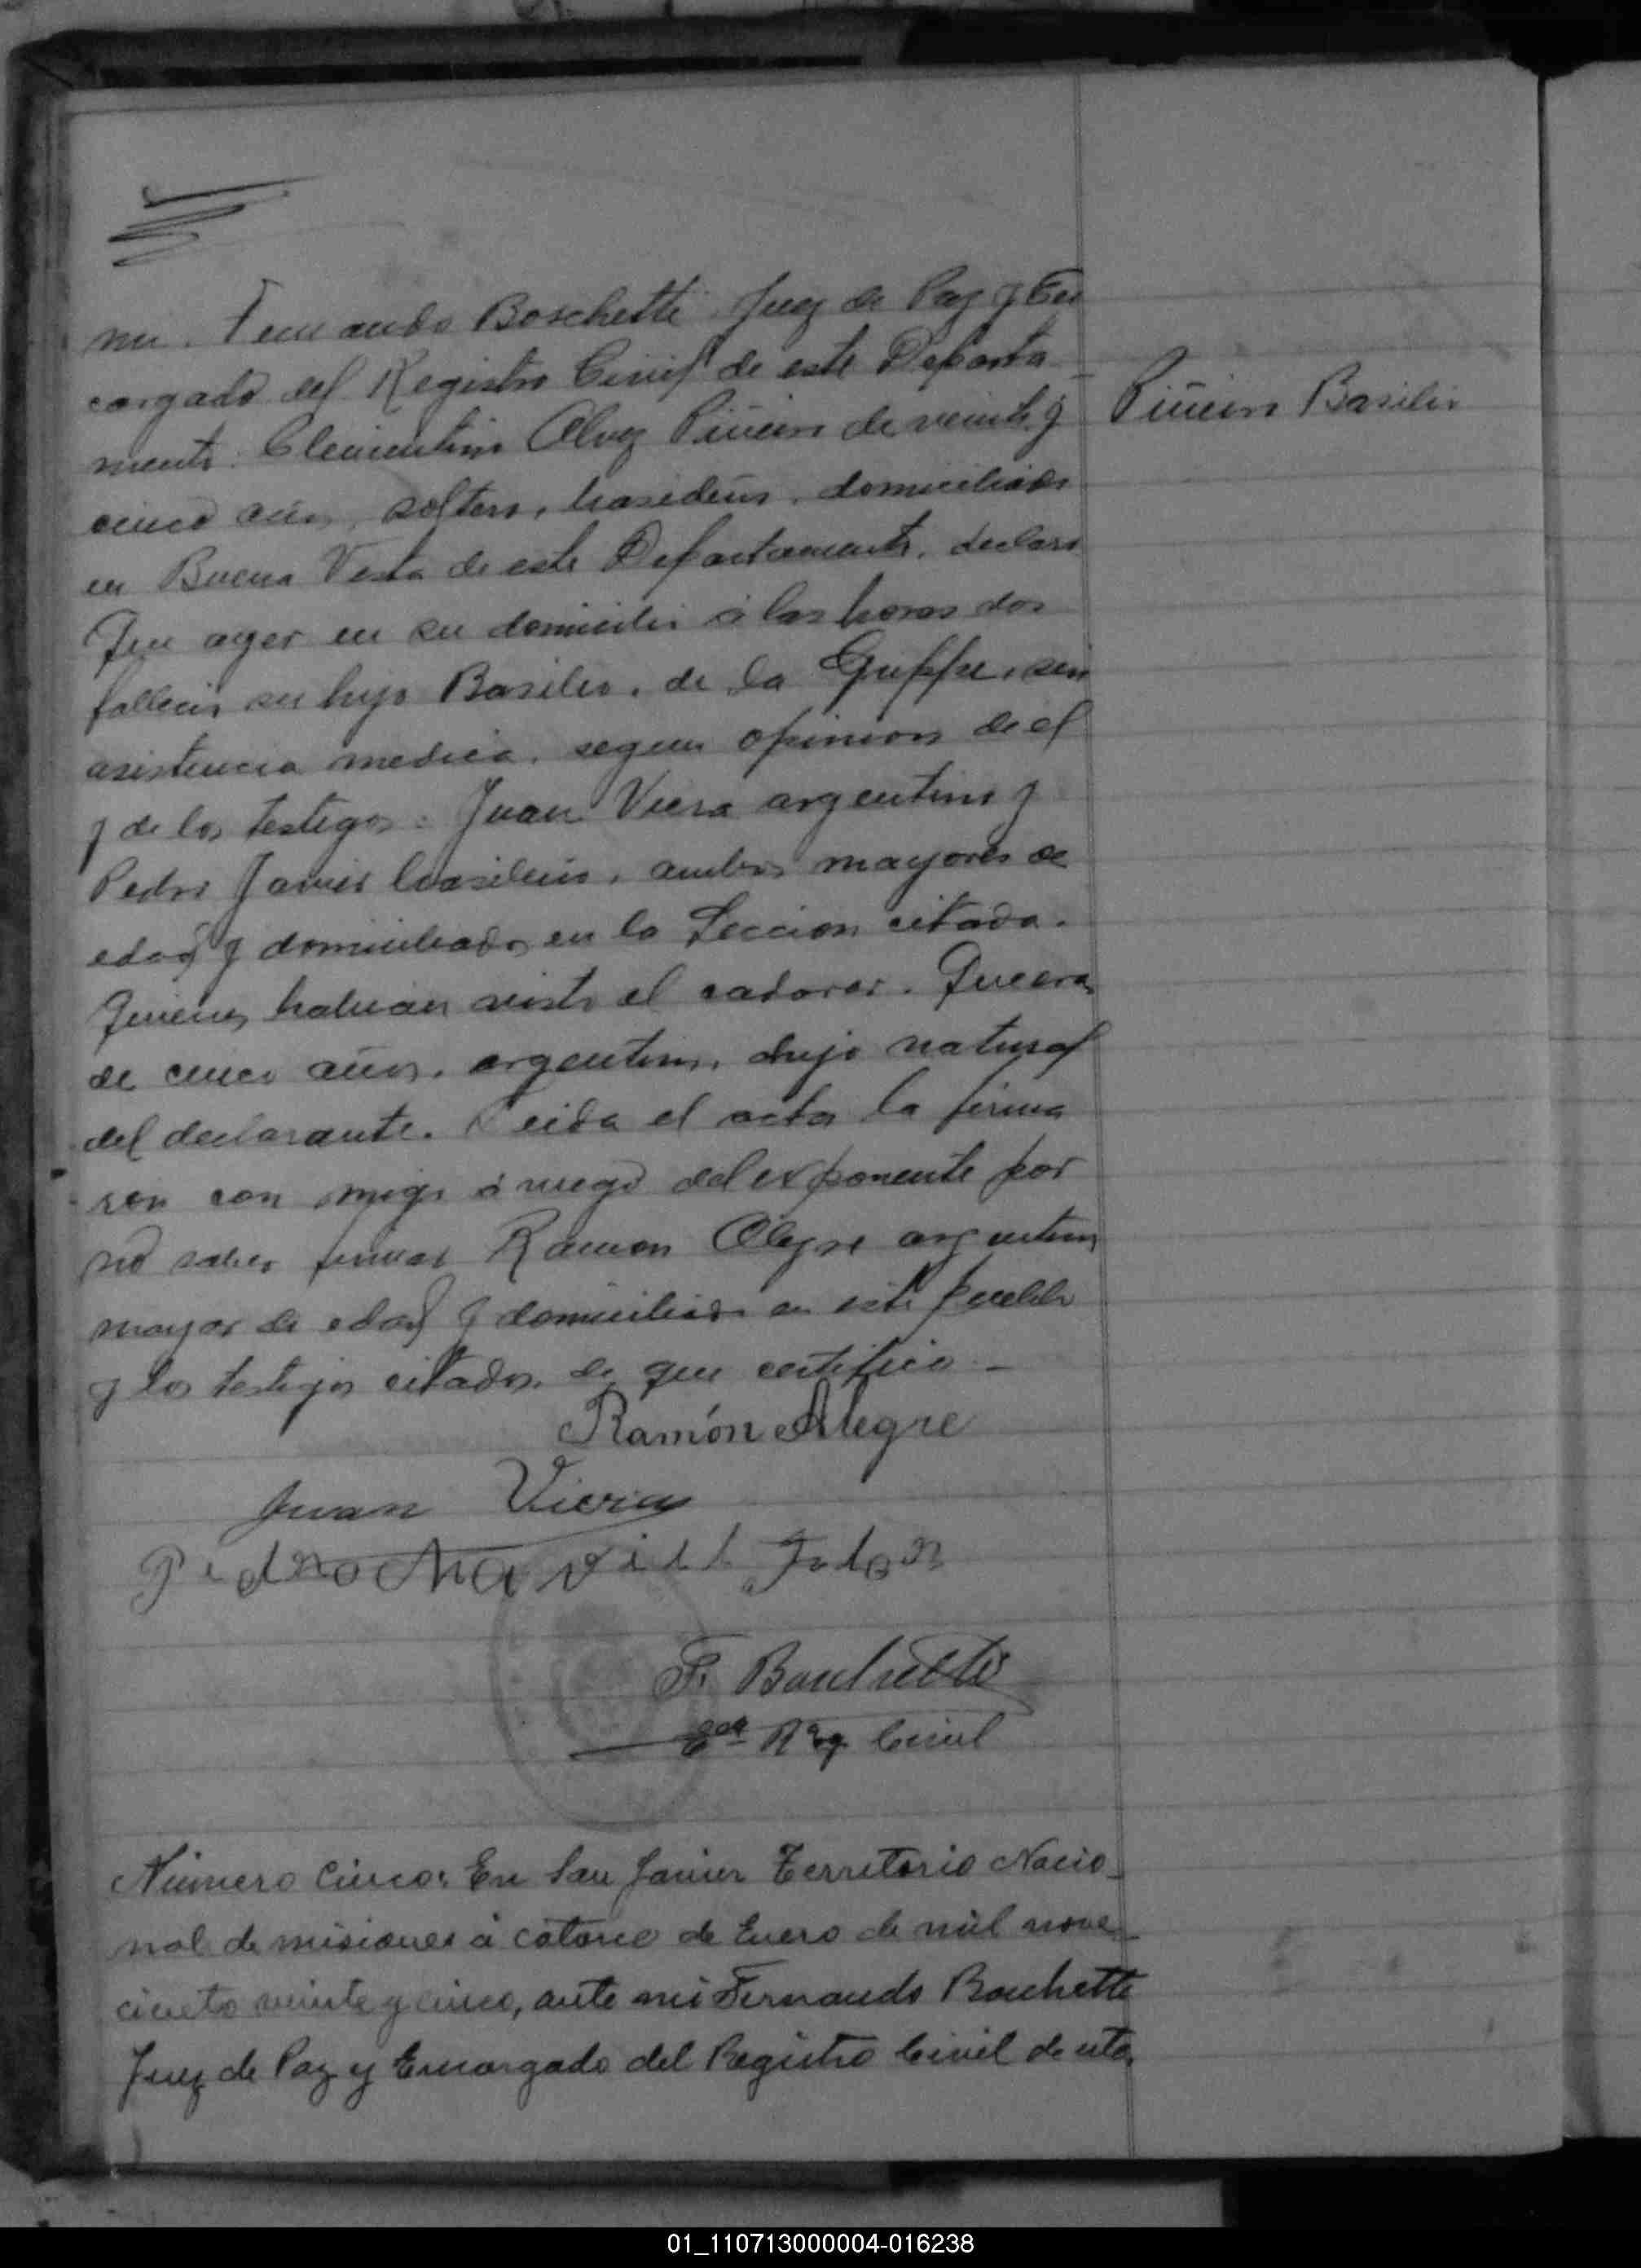 mi. Fernando Boschetti Juez de Paz y En
cargado del Registro Civil de este Departa
Piñeiro Basilio
mento. Clementino Alvez Piñeiro de veinte y
cinco años, soltero, brasileño, domiciliado
en Buena Vista de este Departamento, declaro
Que ayer en su domicilio á las horas dos
fallecio su hijo Basilio, de la Grippe, sin
asistencia medica, segun opinion de el
y de los testigos: Juan Viera argentino y
Pedro Javier brasileño, ambos mayores de
edad y domiciliados en la Seccion citada.
Quienes habian visto el cadaver. Que era
de cinco años, argentino, hijo natural
del declarante. Leida el acta la firma
ron con migo á ruego del exponente por
no saber firmar Ramon Alegre argentino
mayor de edad y domiciliado en este pueblo
y los testigos citados, de que certifico_
Ramón Alegre
Juan Viera
Pedro
F. Boschetti
Eco Reg Civil
Número Cinco: En San Javier Territorio Nacio_
nal de misiones á catorce de Enero de mil nove_
ciento veinte y cinco, ante mi Fernando Boschetti
Juez de Paz y Encargado del Registro Civil de este,
01_110713000004-016238